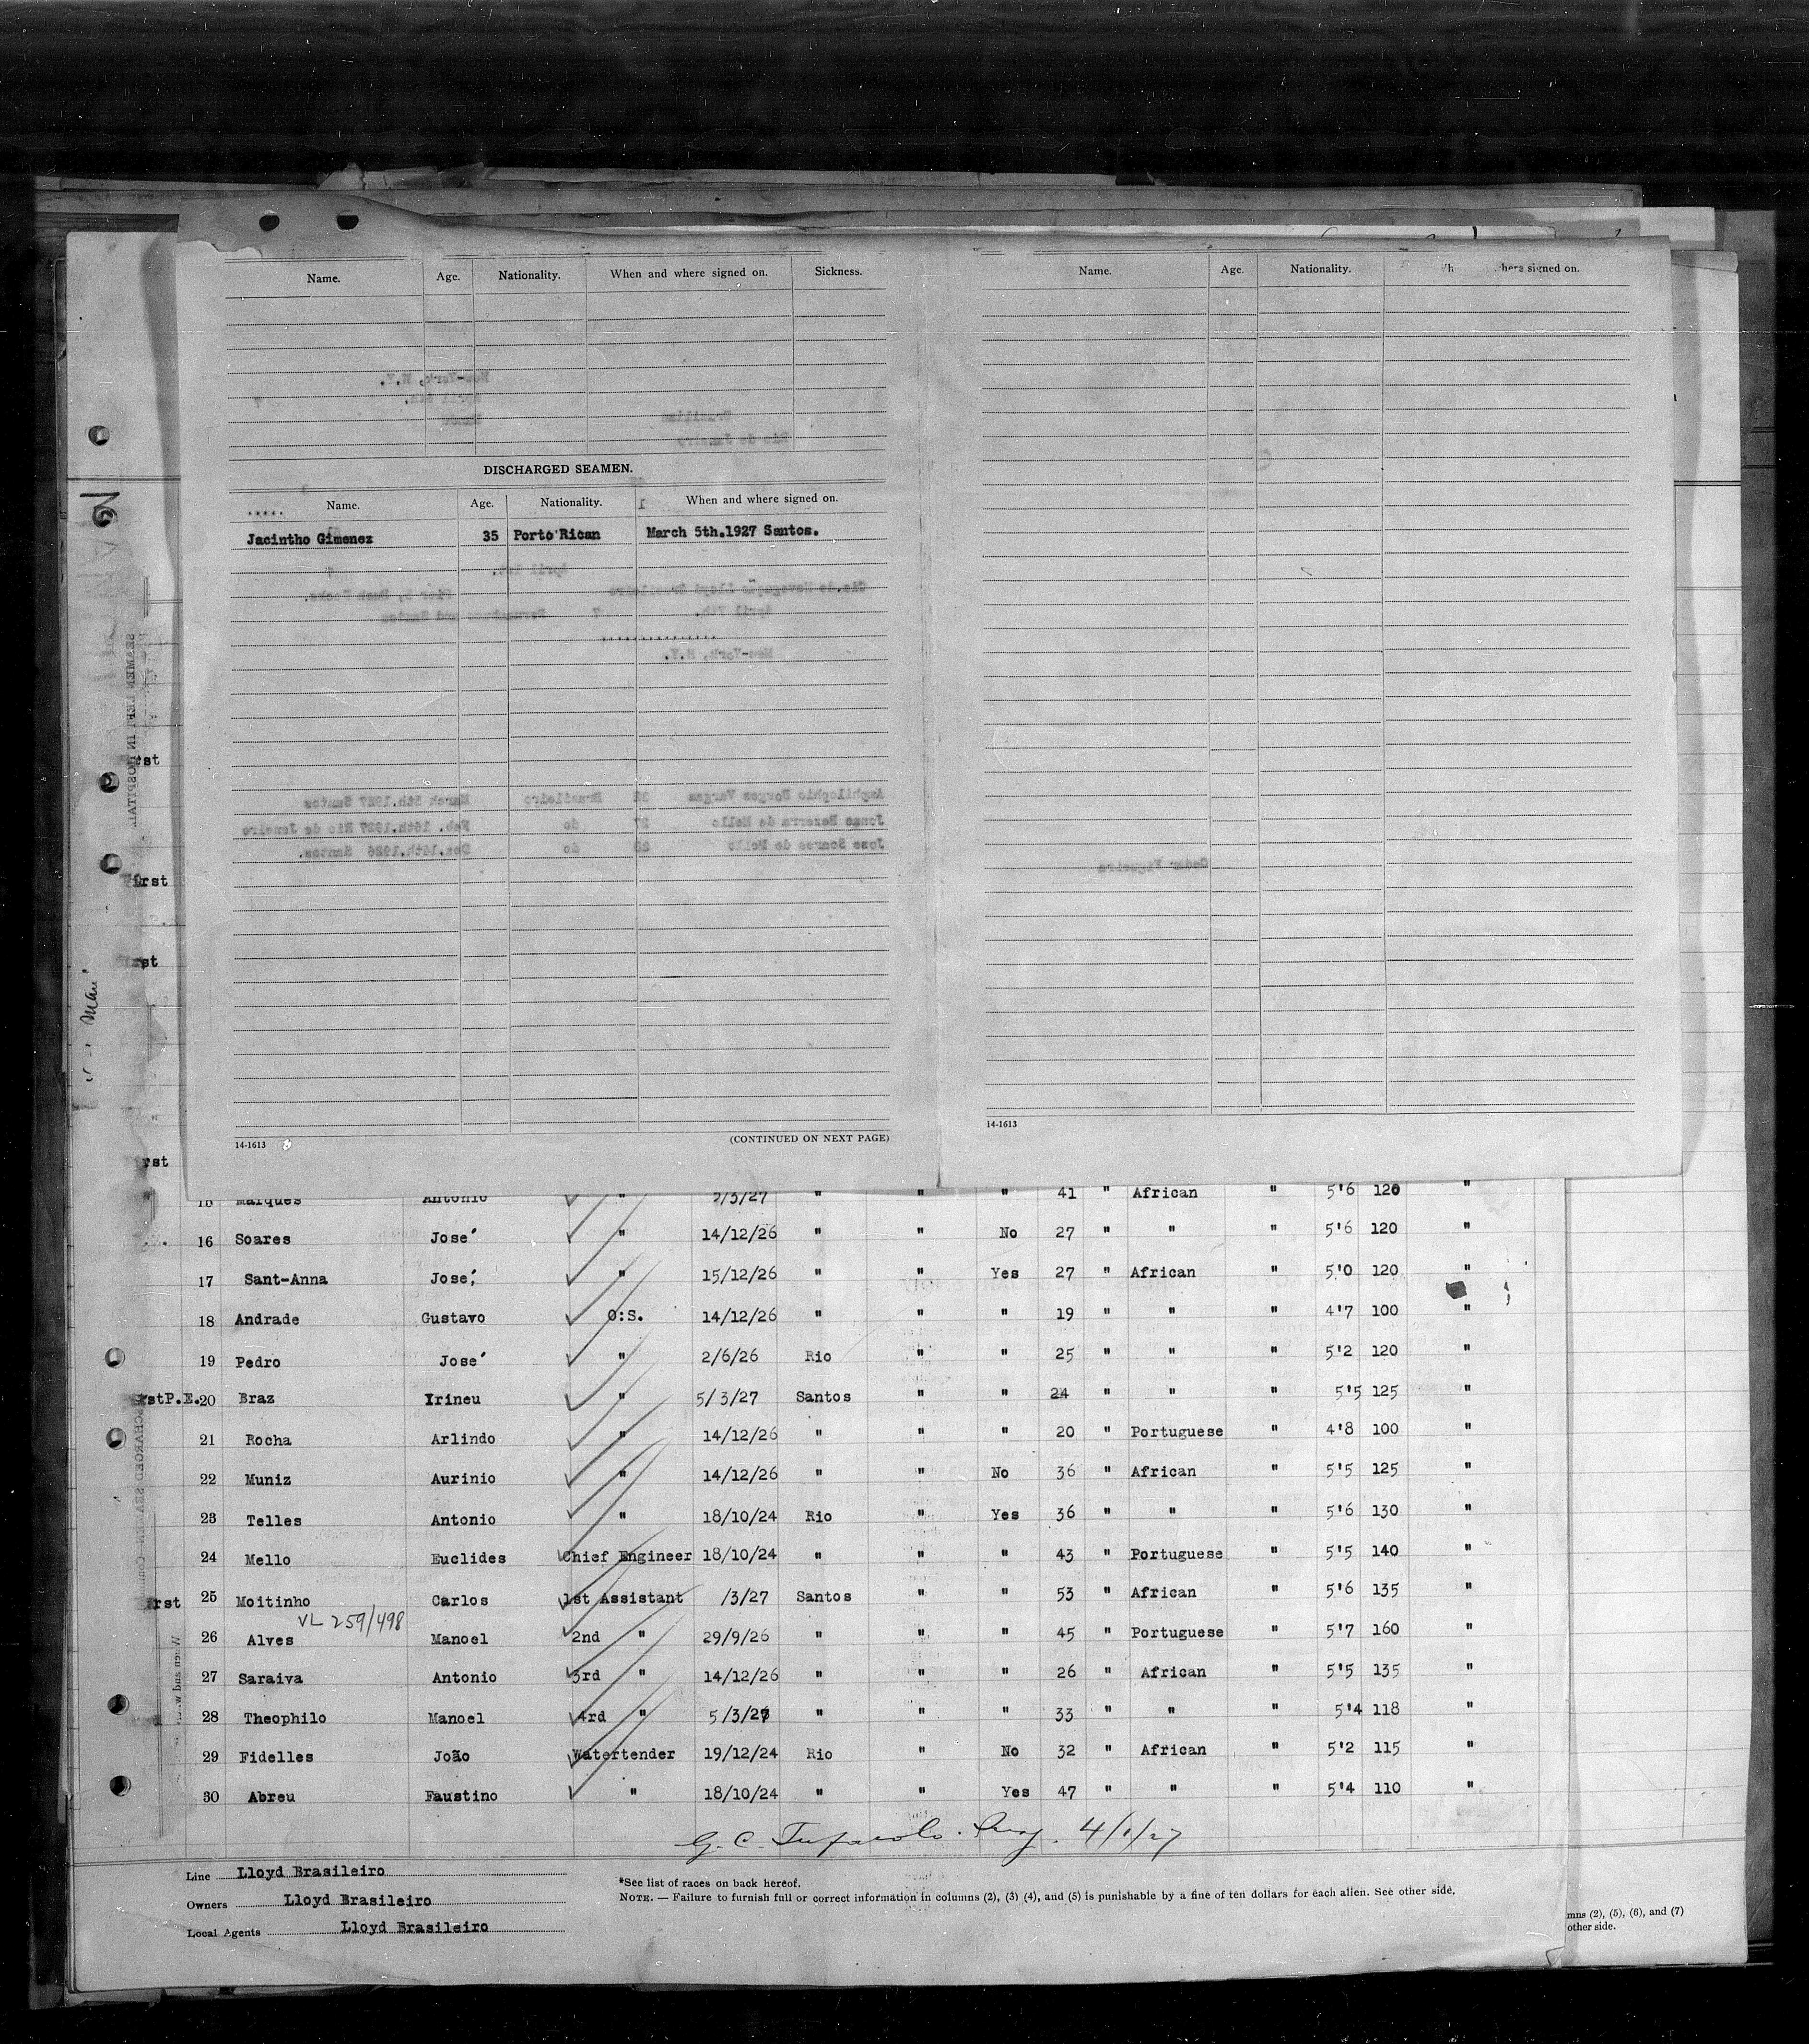 Name. Age. Nationality. When and where signed on. Sickness.
DISCHARGED SEAMEN.
Name. Age. Nationality. When and where signed on.
Jacintho Gimenez 35 Porto Rican March 5th.1927 Santos.
14-1613 (CONTINUED ON NEXT PAGE)
Name. Age. Nationality. signed on.
14-1613
15 Marques Antonio " 5/3/27 " " " 41 " African " 5'6 120 "
16 Soares José " 14/12/26 " " No 27 " " " 5'6 120 "
17 Sant-Anna José " 15/12/26 " " Yes 27 " African " 5'0 120 "
18 Andrade Gustavo O:S. 14/12/26 " " " 19 " " " 4'7 100 "
19 Pedro José " 2/6/26 Rio " " 25 " " " 5'2 120 "
rstP.E. 20 Braz Irineu " 5/3/27 Santos " " 24 " " " 5'5 125 "
21 Rocha Arlindo " 14/12/26 " " " 20 " Portuguese " 4'8 100 "
22 Muniz Aurinio " 14/12/26 " " No 36 " African " 5'5 125 "
23 Telles Antonio " 18/10/24 Rio " Yes 36 " " " 5'6 130 "
24 Mello Euclides Chief Engineer 18/10/24 " " " 43 " Portuguese " 5'5 140 "
rst 25 Moitinho Carlos 1st Assistant /3/27 Santos " " 53 " African " 5'6 135 "
VL 259/498
26 Alves Manoel 2nd " 29/9/26 " " " 45 " Portuguese " 5'7 160 "
27 Saraiva Antonio 3rd " 14/12/26 " " " 26 " African " 5'5 135 "
28 Theophilo Manoel 4rd " 5/3/27 " " " 33 " " " 5'4 118 "
29 Fidelles João Watertender 19/12/24 Rio " No 32 " African " 5'2 115 "
30 Abreu Faustino " 18/10/24 " " Yes 47 " " " 5'4 110 "
G. C. 4/1/27
Line Lloyd Brasileiro
Owners Lloyd Brasileiro
Local Agents Lloyd Brasileiro
*See list of races on back hereof.
NOTE. — Failure to furnish full or correct information in columns (2), (3) (4), and (5) is punishable by a fine of ten dollars for each alien. See other side.
mns (2), (5), (6), and (7)
other side.